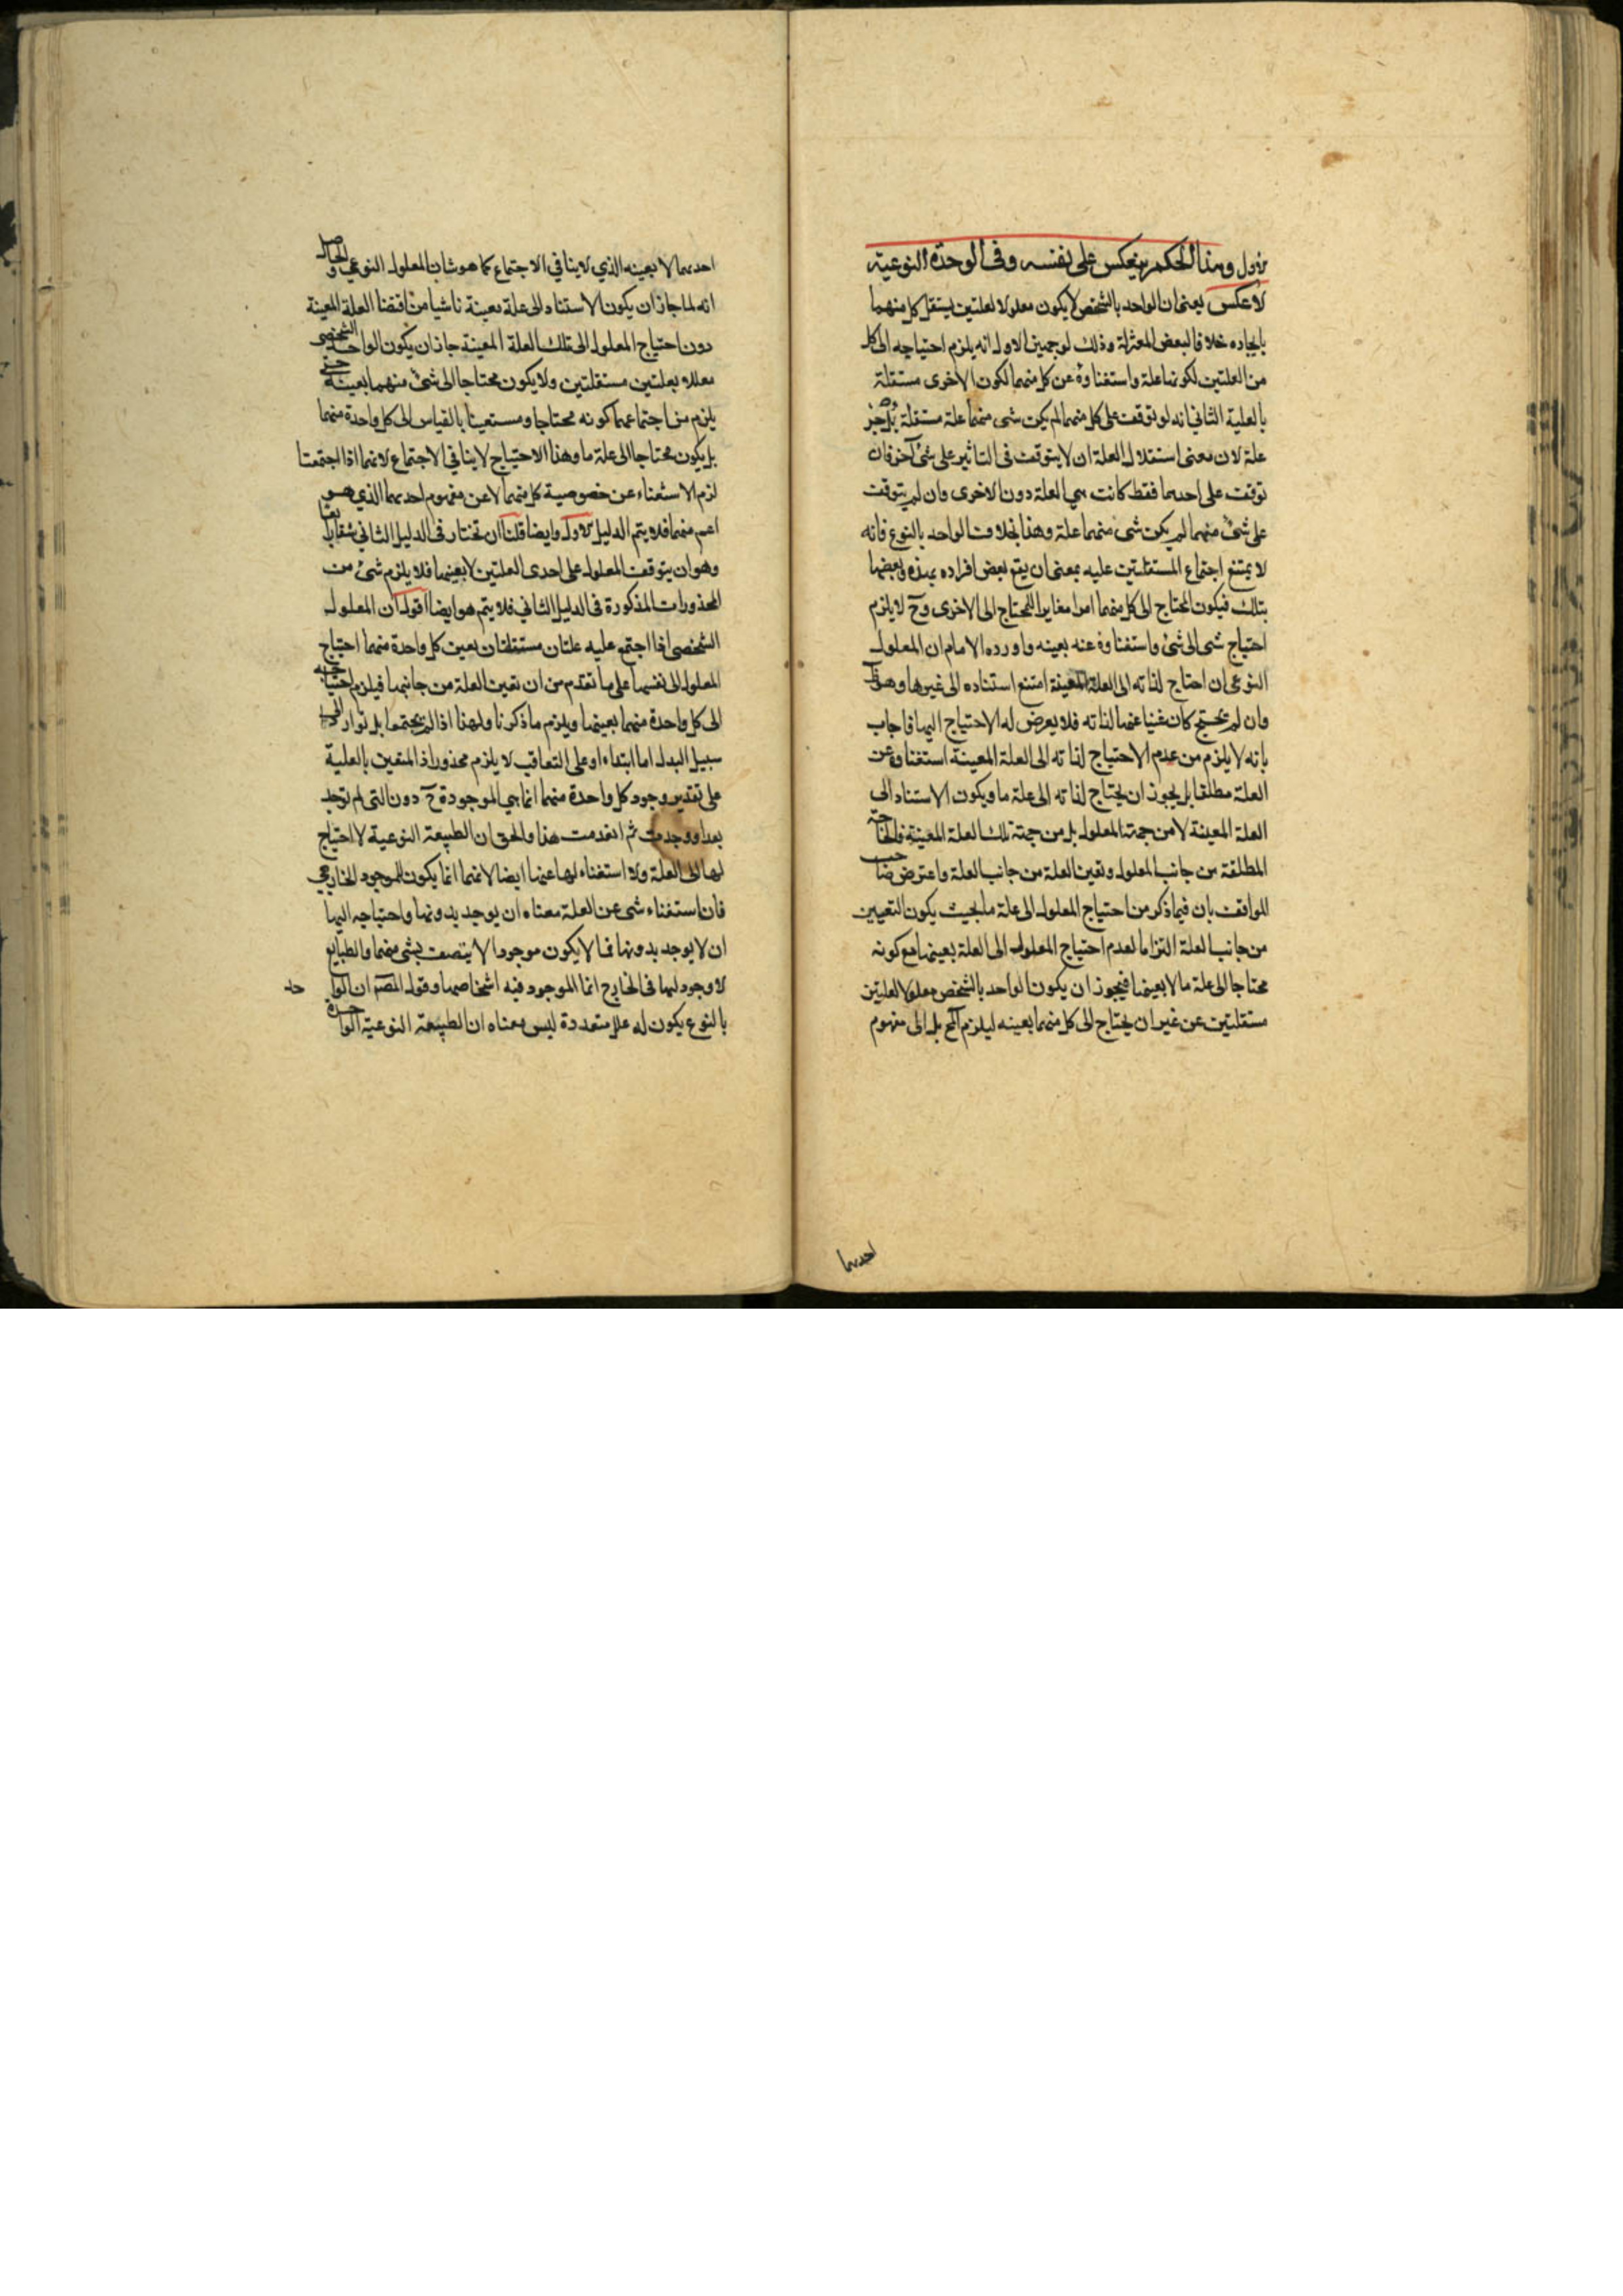 الاول وهذا الحكم ينعكس على نفسه وفى الوحدة النوعية
لا عكس يعنى ان الواحد بالشخص لا يكون معلولا لعلتين يستقل كل منهما
بايجاده خلافا لبعض المعتزلة وذلك لوجهين الاول انه يلزم احتياجه الى كل
من العلتين لكونها علة واستغناوه عن كل منهما لكون الاخرى مستقلة
بالعلية الثاني انه لو توقف على كل منهما لم يكن شى منهما علة مستقلة بل جزء
علة لان معنى استقلال العلة ان لا يتوقف فى التاثير على شئ آخر فان
توقف على احدهما فقط كانت هى العلة دون الاخرى وان لم يتوقف
على شئ منهما لم يكن شئ منهما علة وهذا بخلاف الواحد بالنوع فانه
لا يمتنع اجتماع المستقلتين عليه بمعنى ان يقع بعض افراده بهذه وبعضها
بتلك فيكون المحتاج الى كل منهما امرا مغايرا للمحتاج الى الاخرى وح لا يلزم
احتياج شى الى شئ واستغناوه عنه بعينه واورده الامام ان المعلول
النوعى ان احتاج لذاته الى العلة المعينة امتنع استناده الى غيرها وهو ظ
وان لم يحتج كان غنيا عنها لذاته فلا يعرض له الاحتياج اليها فاجاب
بانه لا يلزم من عدم الاحتياج لذاته الى العلة المعينة استغناوه عن
العلة مطلقا بل يجوز ان يحتاج لذاته الى علة ما ويكون الاستناد الى
العلة المعينة لا من جهة المعلول بل من جهة تلك العلة المعينة فالحاجة
المطلقة من جانب المعلول وتعين العلة من جانب العلة واعترض صاحب
المواقف بان فيما ذكر من احتياج المعلول الى علة ما بحيث يكون التعيين
من جانب العلة التزاما لعدم احتياج المعلول الى العلة بعينها مع كونه
محتاجا الى علة ما لا بعينها فيجوز ان يكون الواحد بالشخص معلولا لعلتين
مستقلتين عن غير ان يحتاج الى كل منهما بعينه ليلزم المح بل الى مفهوم
احدهما
احدهما لا بعينه الذي لا ينافي الاجتماع كما هو شان المعلول النوعي والحاصل
انه لما جاز ان يكون الاستناد الى علة معينة ناشيا من اقتضا العلة المعينة
دون احتياج المعلول الى تلك العلة المعينة جاز ان يكون الواحد الشخصى
معللا بعلتين مستقلتين ولا يكون محتاجا الى شئ منهما بعينه حتى
يلزم من اجتماعهما كونه محتاجا ومستغنيا بالقياس الى كل واحدة منهما
بل يكون محتاجا الى علة ما وهذا الاحتياج لا ينافي الاجتماع لانهما اذا اجتمعتا
لزم الاستغناء عن خصوصية كل منهما لا عن مفهوم احدهما الذي هو
اعم منهما فلا يتم الدليل الاول وايضا قلنا ان نختار فى الدليل الثاني شقا رابعا
وهو ان يتوقف المعلول على احدى العلتين لا بعينها فلا يلزم شئ من
المحذورات المذكورة فى الدليل الثاني فلا يتم هو ايضا اقول ان المعلول
الشخصى اذا اجتمع عليه علتان مستقلتان بعين كل واحدة منهما احتياج
المعلول الى نفسها على ما تقدم من ان تعين العلة من جانبها فيلزم احتياجه
الى كل واحدة منهما بعينها ويلزم ما ذكرنا ولهذا اذا لم يجتمعا بل توارد
سبيل البدل اما ابتداء او على التعاقب لا يلزم محذور اذ المتعين بالعلية
على تقدير وجود كل واحدة منهما انما هى الموجودة ح دون التى لم توجد
بعد او وجدت ثم انعدمت هذا والحق ان الطبيعة النوعية لا احتياج
لها الى العلة ولا استغناء لها عنها ايضا لانهما انما يكون للموجود الخارجي
فان استغناء شى عن العلة معناه ان يوجد بدونها واحتياجه اليها
ان لا يوجد بدونها فما لا يكون موجودا لا يتصف بشى منهما والطبايع
لا وجود لها فى الخارج انما الموجود فيه اشخاصها وقول المصن ان الواحد
بالنوع يكون له علل متعددة ليس معناه ان الطبيعة النوعية الواحدة